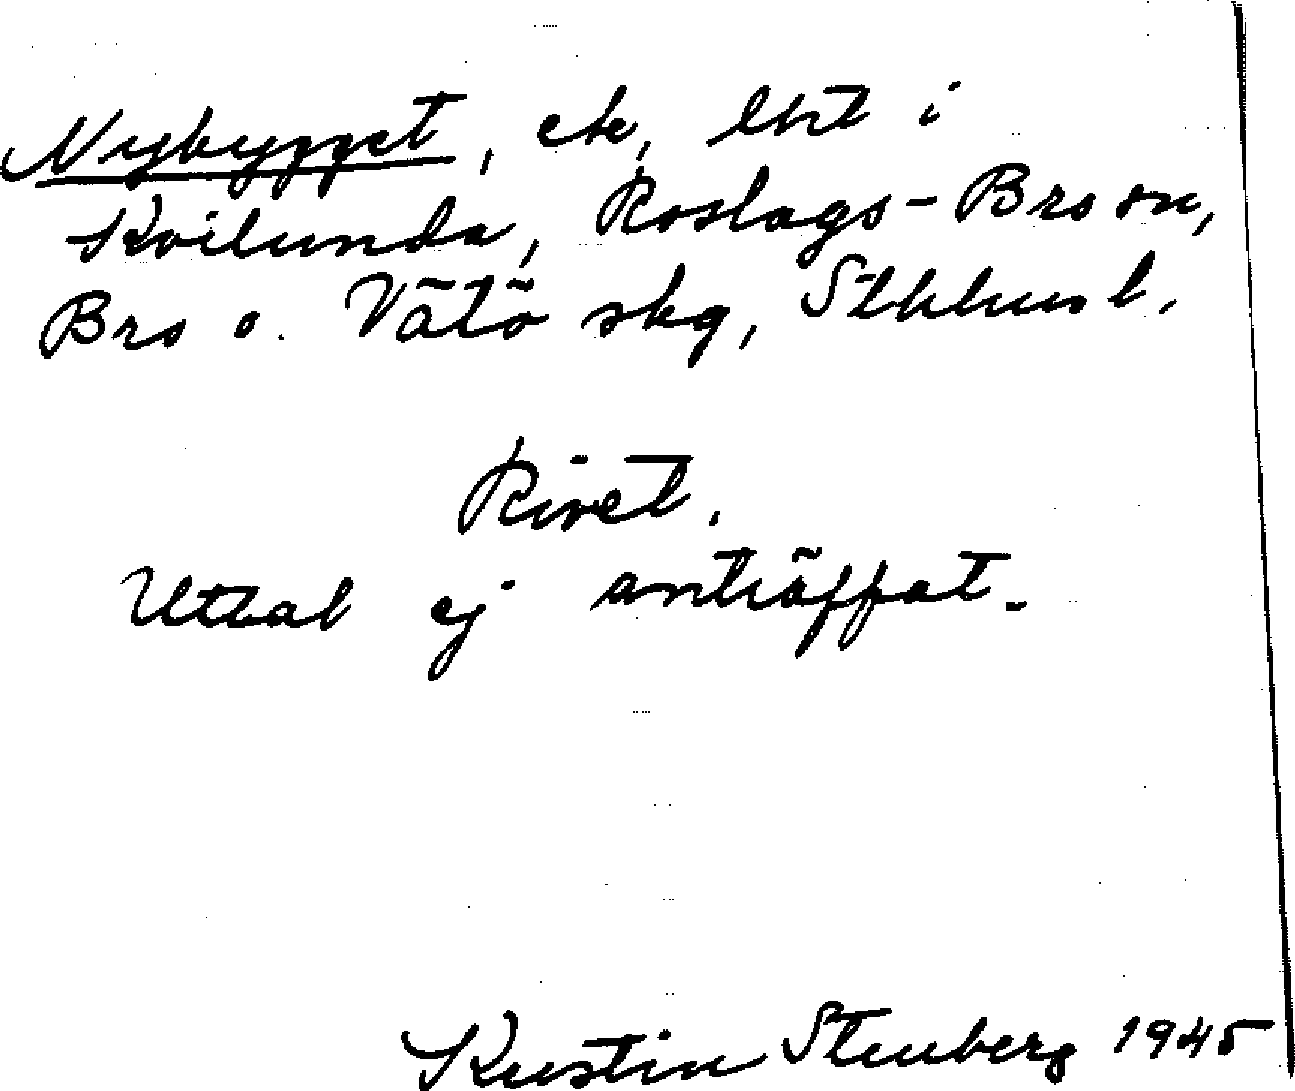 Nybygget, ck, lht i
Kvilunda, Roslags-Bro sn,
Bro o. Vätö skg, Sthlms l.
Rivet.
Uttal ej anträffat.
Kerstin Stenberg 1945